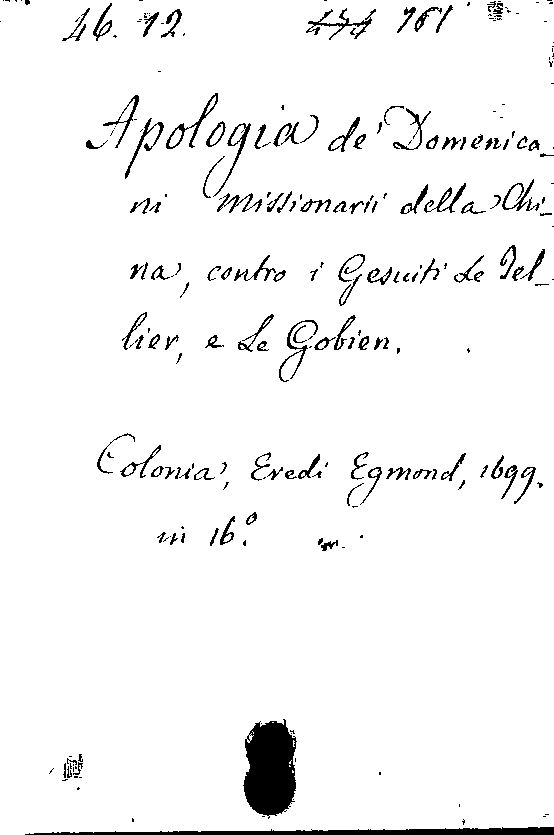 46. 12. 474 761
Apologia de' Domenica_
ni missionarii della Chi_
na, contro i Gesuiti Le Tel_
lier, e Le Gobien.
Colonia, Eredi Egmond, 1699.
in 16.º